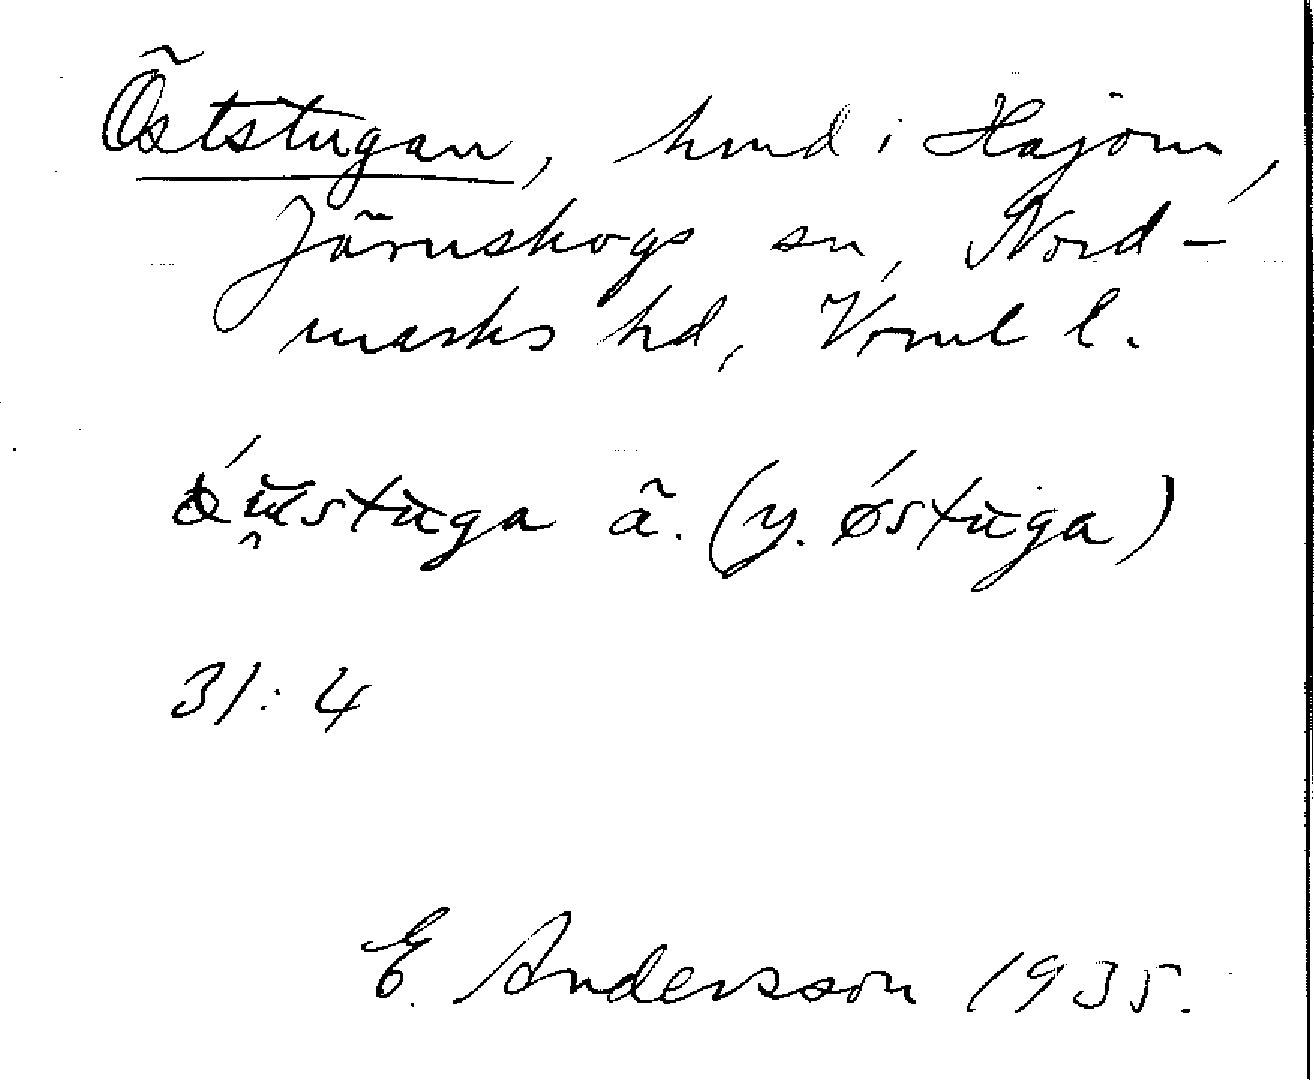 Öststugan, hmd i Hajom,
Järnskogs sn, Nord-
marks hd, Vrml l.
östùga ä. (y. ǿstùga)
31:4
E. Andersson 1935.